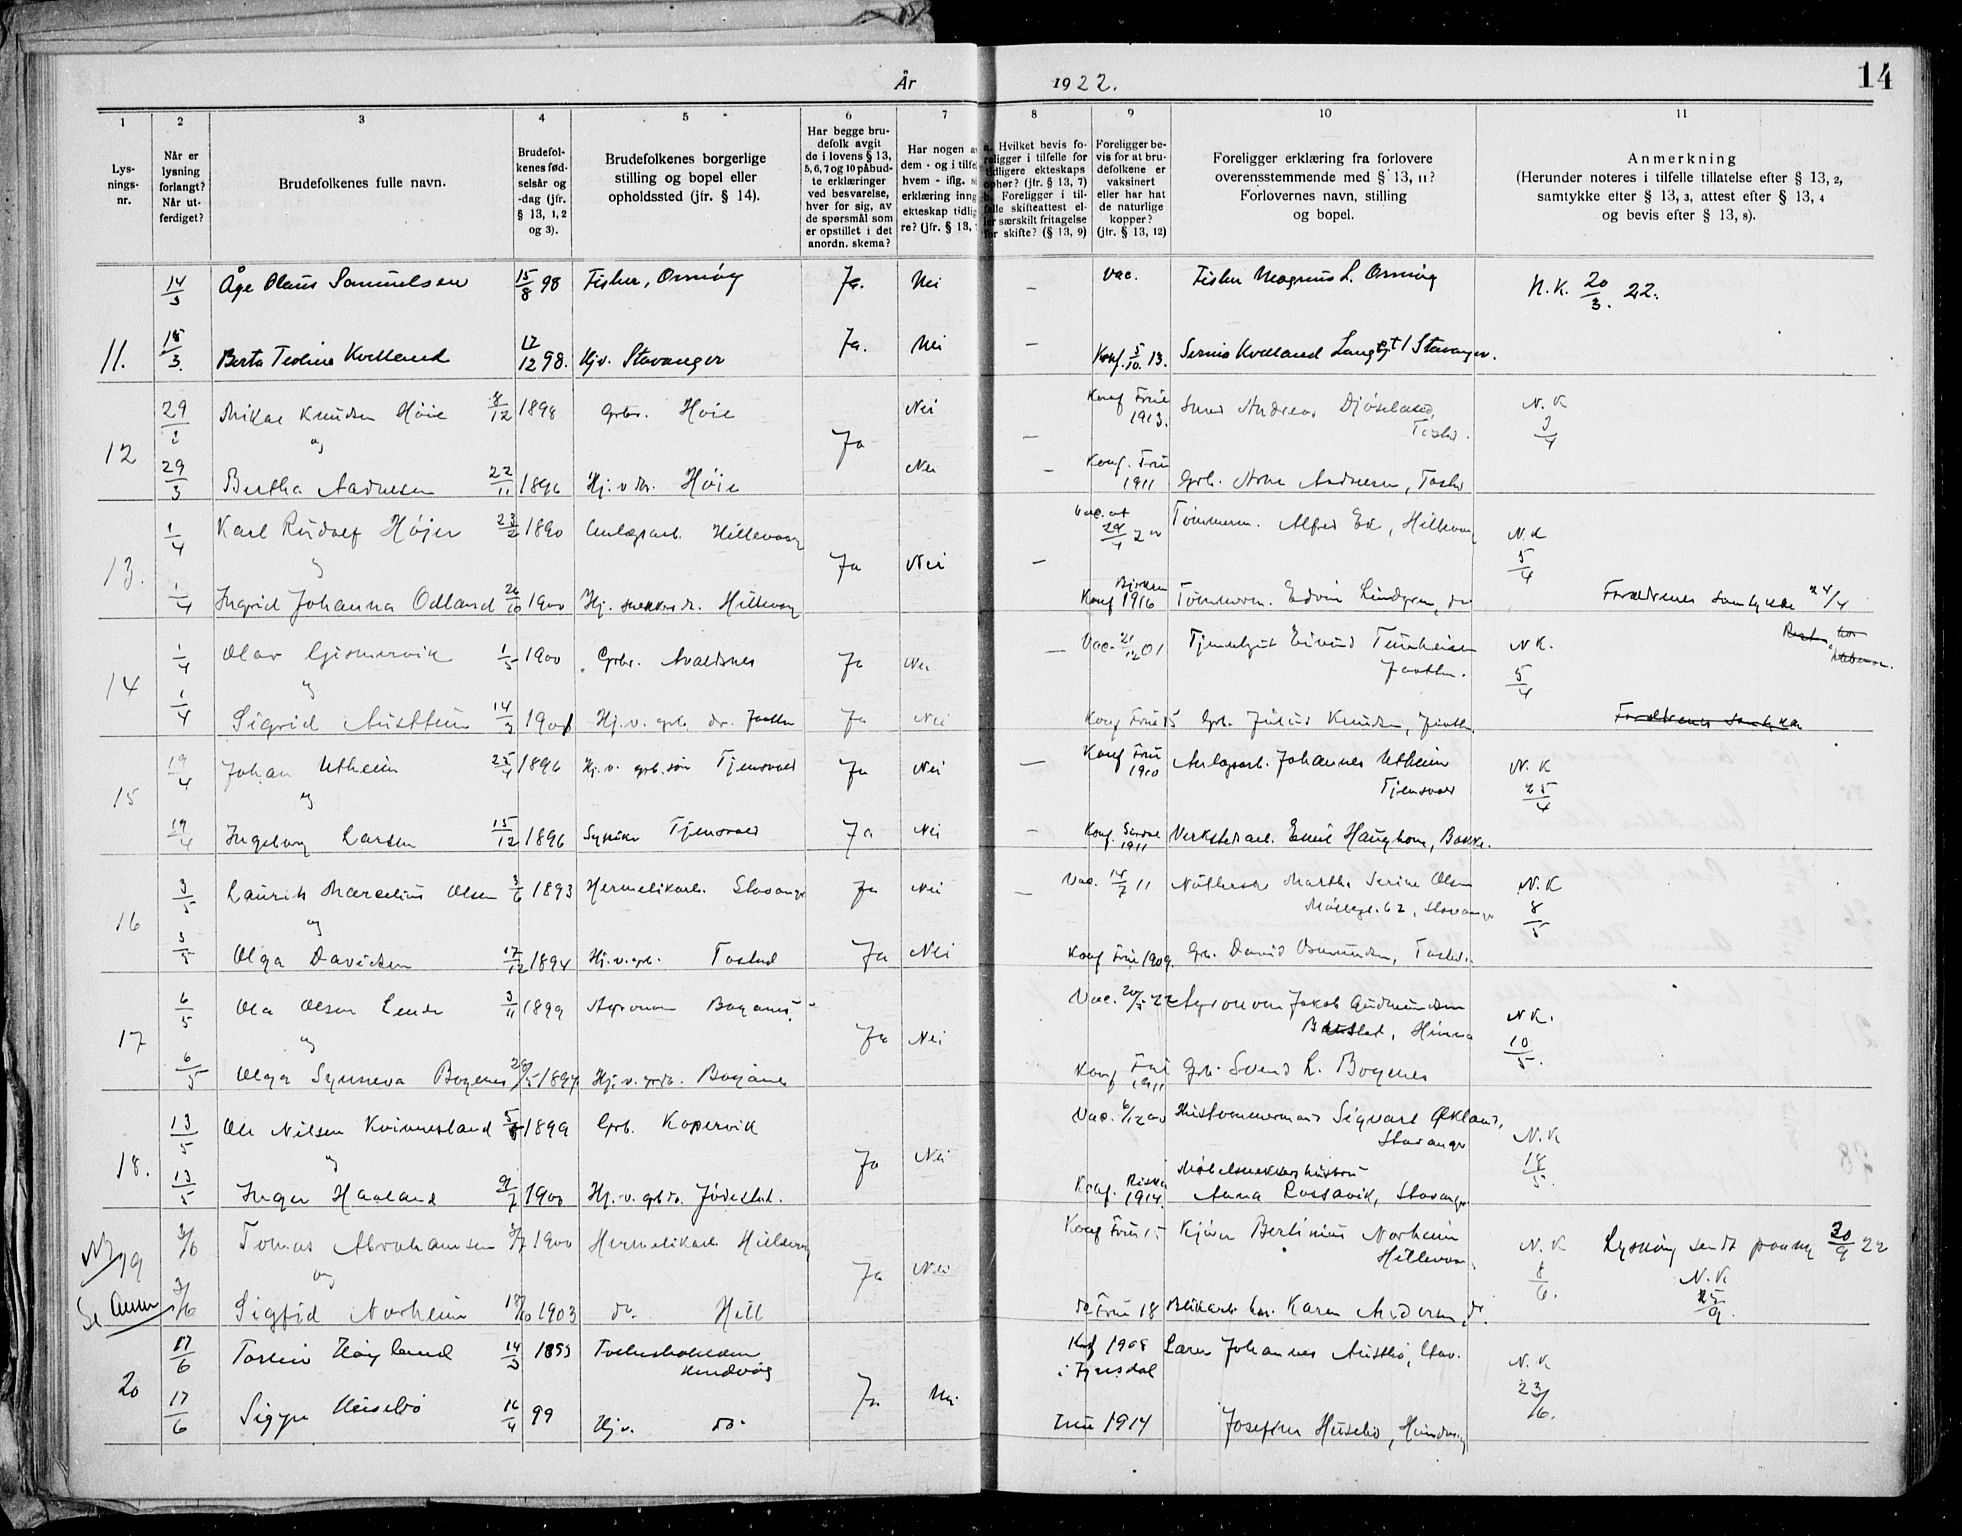 År 1922.
14
1 2 3 4 5 6 7 8 9 10 11
Lys-
nings-
nr.
Når er
lysning
forlangt?
Når ut-
ferdiget?
Brudefolkenes fulle navn.
Brudefol-
kenes fød-
selsår og
-dag (jfr.
§ 13, 1, 2
og 3).
Brudefolkenes borgerlige
stilling og bopel eller
opholdssted (jfr. § 14).
Har begge bru-
defolk avgit
de i lovens § 13,
5, 6, 7 og 10 påbud-
te erklæringer
ved besvarelse,
hver for sig, av
de spørsmål som
er opstillet i det
anordn. skema?
Har nogen a
dem - og i tilfel
hvem - iflg. si
erklæring inng
ekteskap tidlig
re? (jfr. § 13,
a. Hvilket bevis fo-
religger i tilfelle for
tidligere ekteskaps
ophør? (jfr. § 13, 7)
b. Foreligger i til-
felle skifteattest el-
ler særskilt fritagelse
for skifte? (§ 13, 9)
Foreligger be-
vis for at bru-
defolkene er
vaksinert
eller har hat
de naturlige
kopper?
(jfr. § 13, 12)
Foreligger erklæring fra forlovere
overensstemmende med § 13, 11?
Forlovernes navn, stilling
og bopel.
Anmerkning
(Herunder noteres i tilfelle tillatelse efter § 13, 2,
samtykke efter § 13, 3, attest efter § 13, 4
og bevis efter § 13, 8).
14/3 Åge Olaus Samuelsen 15/8 98 Fisker, Ormøy Ja. Nei — Vac. Fisker Magnus L. Ormøy N.K. 20/3. 22.
11. 18/3. Berta Teoline Kvelland 17/12 98. Hjv. Stavanger Ja. Nei — Konf. 5/10. 13. Kvelland Langgt 1 Stavanger.
29 Mikal Knudsen Høie 8/12 1898 Grbr. Høie Nei Konf Frue 1913. Andreas N.K 3/4
12 og Ja —
29/3 Bertha Aadnesen 22/11 1896 Hj. v. Høie Nei — Konf. Frue 1911 Grb. Arne Aadnesen, Tasta
1/4 Karl Rudolf Højer 23/2 1890 Anlægsarb. Hillevaag Vac. at Tømmerm. Alfred Ek, Hillevaag N.K 5/4
13. og Ja Nei —
1/4 Ingrid Johanna Odland 26/10 1900 Hj. Hillevag Konf 1916 Tømmerm. Edvin Lindgren, do Forældrenes samtykke 24/4
1/4 Olav Gismervik 1/5 1900 Grbr. Avaldsnes Ja Nei — Vac. 21/12 01 Eivind N.K. 5/4
14 og
1/4 Sigrid Austtun 14/3 1901 Hj. v. grb. dr. Jaatten Ja Nei Konf Frue 15 Grb. Julius Knudsen, Jaatten Forældrenes samtykke
19/4 Johan Utheim 25/4 1896 Hj. v. grb. søn Tjensvold Ja Nei — Konf Frue 1910 Anlægsarb. Johannes Utheim Tjensvold N.K 25/4
15 og
19/4 Ingeborg Larsen 15/12 1896 Tjensvold Ja Nei — Konf. 1911 Verkstedsarb. Emil Haughom, Bakke.
3/5 Laurits Marcelius Olsen 3/6 1893 Hermetikarb. Stavanger Ja Nei — Vac. 14/7 11 Martha Serine Olsen N.K 8/5
Møllegt. 62, Stavanger
16 og
3/5 Olga Davidsen 17/12 1894 Hj. v. grb. Tastad Ja Nei Konf Frue 1909. Grb. David Osmundsen, Tasta.
6/5 Ola Olsen Lende 3/11 1899 Agronom Bogenes Vac. 20/3 22 Agronom Jakob Gudmundsen N.K. 10/5.
, Hinna
17 og Ja Nei
6/5 Olga Synneva Bogenes 1897 Hj. v. grdr. Bogenes Konf Frue 1911 Grb. Svend L. Bogenes
13/5 Ole Nilsen Kvinnesland 1899 Grb. Kopervik Vac. 6/12 00 Hustømmermand Sigvart Økland, N.K 18/5.
Stavanger
18. og Ja Nei
13/5 Inger Haaland 9/7 1900 Hj. v. grb dr. Jødestad. Konf. Riska 1914. Møbelsnekkerhustru
Anna Rossavik, Stavanger
3/6 Tomas Abrahamsen 3/7 1900 Hermetikarb. Hillevag Konf Frue 15 Kjører Bertinius Norheim N.K 8/6. Lysning sendt paany 20/9 22
Hillevaag.
19 og Ja Nei N.K 25/9.
Se Anm 3/6 Sigfrid Norheim 18/10 1903 do. Hill do Frue 18 Blikarb. Karen Andersen, do.
17/6 Torleiv Høyland 14/3 1893 Konf 1908 Lærer Johannes Austbø, Stav. N.K 23/6.
Hundvåg i Gjesdal
20 Ja. Nei
17/6 Signe Husebø 16/4 99 Hjv. do. Frue 1914 Josefine Husebø, Hundvåg